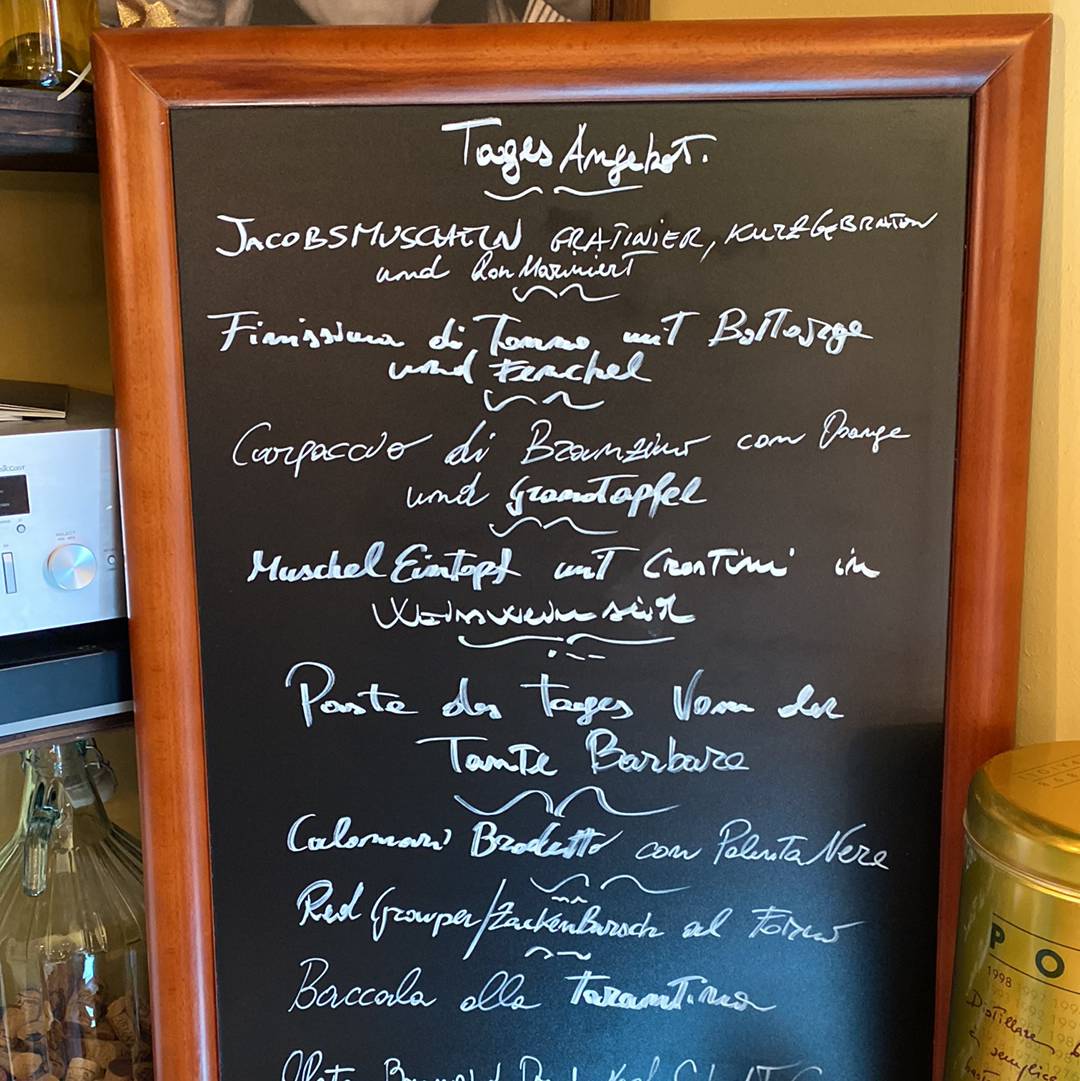 Tages Angebot.
JACOBSMUSCHELN GRATINIER, KURZGEBRATEN
und Roh Mariniert
Finissima di Tonno mit Bottarga
und Fenchel
Carpaccio di Branzino con Orange
und Granatapfel
Muschel Eintopf mit Crostini in
Pasta des tages Von der
Tante Barbara
Calamari Brodetto con Polenta Nera
Red Grouper/Zackenbarsch al Forno
Baccala alla Tarantina
PO
1998
Distillare
semplice